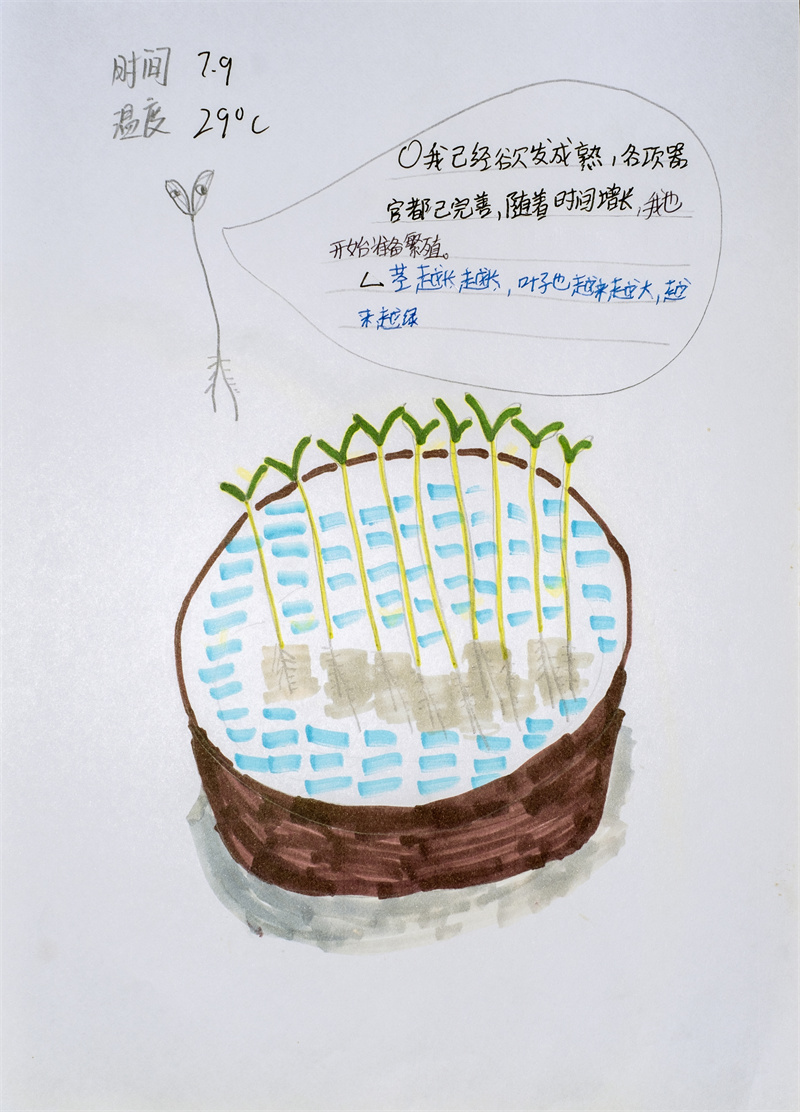 时间 7.9
温度 29°C
○我已经欲发成熟，各项器
官都已完善，随着时间增长，我也
开始准备繁殖。
茎越长越长，叶子也越来越大，越
来越绿